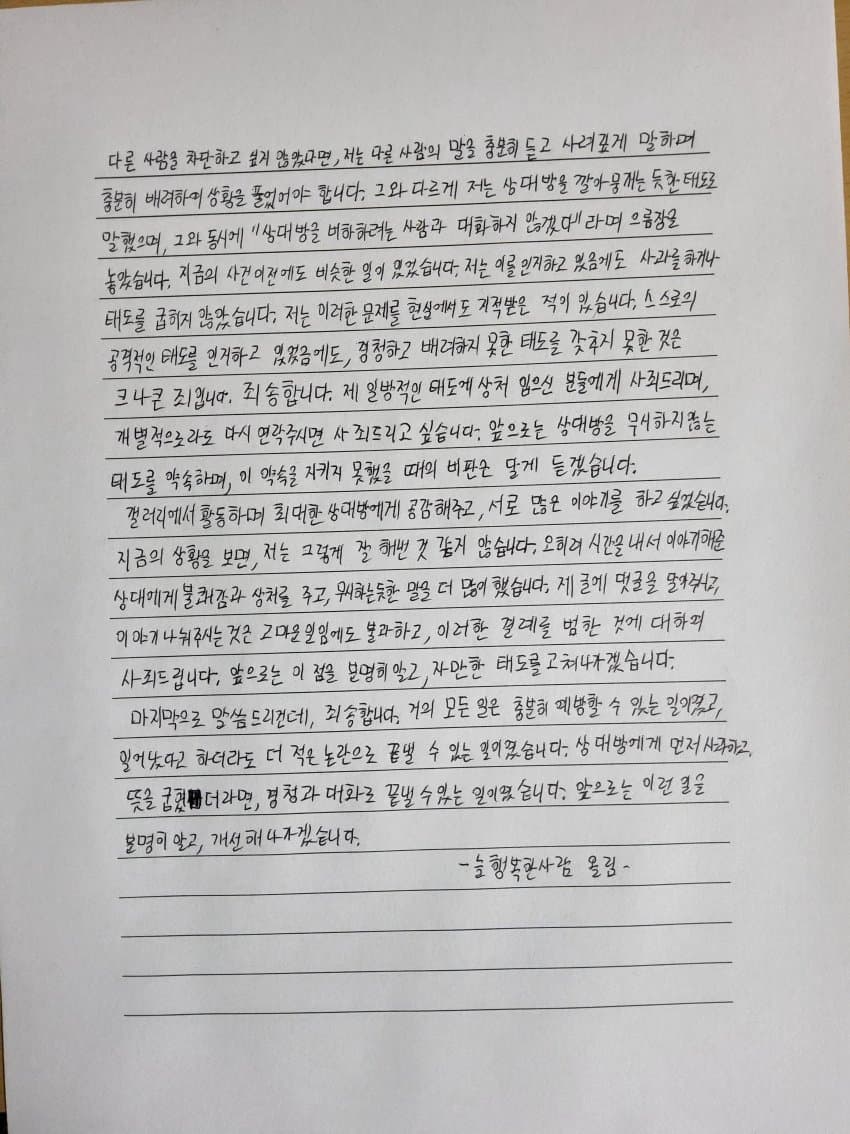 다른 사람을 차단하고 싶지 않았다면, 저는 다른 사람의 말을 충분히 듣고 사려깊게 말하며
충분히 배려하여 상황을 풀었어야 합니다. 그와 다르게 저는 상대방을 깔아뭉개는 듯한 태도로
말했으며, 그와 동시에 "상대방을 비하하려는 사람과 대화하지 않겠다"라며 으름장을
놓았습니다. 지금의 사건 이전에도 비슷한 일이 있었습니다. 저는 이를 인지하고 있음에도 사과를 하거나
태도를 굽히지 않았습니다. 저는 이러한 문제를 현실에서도 지적받은 적이 있습니다. 스스로의
공격적인 태도를 인지하고 있었음에도, 경청하고 배려하지 못한 태도를 갖추지 못한 것은
크나큰 죄입니다. 죄송합니다. 제 일방적인 태도에 상처 입으신 분들에게 사죄드리며,
개별적으로라도 다시 연락주시면 사죄드리고 싶습니다. 앞으로는 상대방을 무시하지 않는
태도를 약속하며, 이 약속을 지키지 못했을 때의 비판은 달게 듣겠습니다.
갤러리에서 활동하며 최대한 상대방에게 공감해주고, 서로 많은 이야기를 하고 싶었습니다.
지금의 상황을 보면, 저는 그렇게 잘 해낸 것 같지 않습니다. 오히려 시간을 내서 이야기해준
상대에게 불쾌감과 상처를 주고, 무시하는듯한 말을 더 많이 했습니다. 제 글에 댓글을 달아주시고,
이야기 나눠주시는 것은 고마운일임에도 불과하고, 이러한 결례를 범한 것에 대하여
사죄드립니다. 앞으로는 이 점을 분명히 알고, 자만한 태도를 고쳐나가겠습니다.
마지막으로 말씀드리건데, 죄송합니다. 거의 모든 일은 충분히 예방할 수 있는 일이였고,
일어났다고 하더라도 더 적은 논란으로 끝낼 수 있는 일이였습니다. 상대방에게 먼저 사과하고,
뜻을 굽혔더라면, 경청과 대화로 끝낼 수 있는 일이였습니다. 앞으로는 이런 일을
분명히 알고, 개선해나가겠습니다.
- 늘행복한사람 올림 -